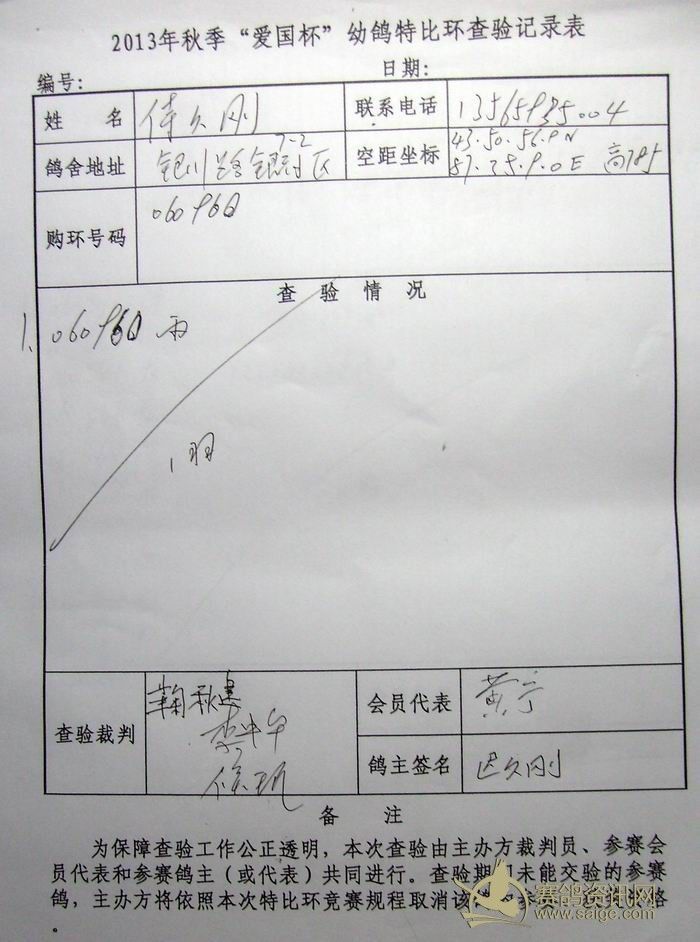 2013年秋季“爱国杯”幼鸽特比环查验记录表
编号: 日期:
姓 名 久刚 联系电话
鸽舍地址 银川路银 7-2 区 空距坐标 43.50.56.9N
87.25.9.0E 高785
购环号码 060960
查 验 情 况
1、060960 雨
1羽
查验裁判 鞠秋 会员代表 黄宁
李中午
侯玑 鸽主签名 久刚
备 注
为保障查验工作公正透明，本次查验由主办方裁判员、参赛会
员代表和参赛鸽主（或代表）共同进行。查验期 未能交验的参赛
鸽，主办方将依照本次特比环竞赛规程取消该 参 格
。
赛鸽资讯网
www.saige.com